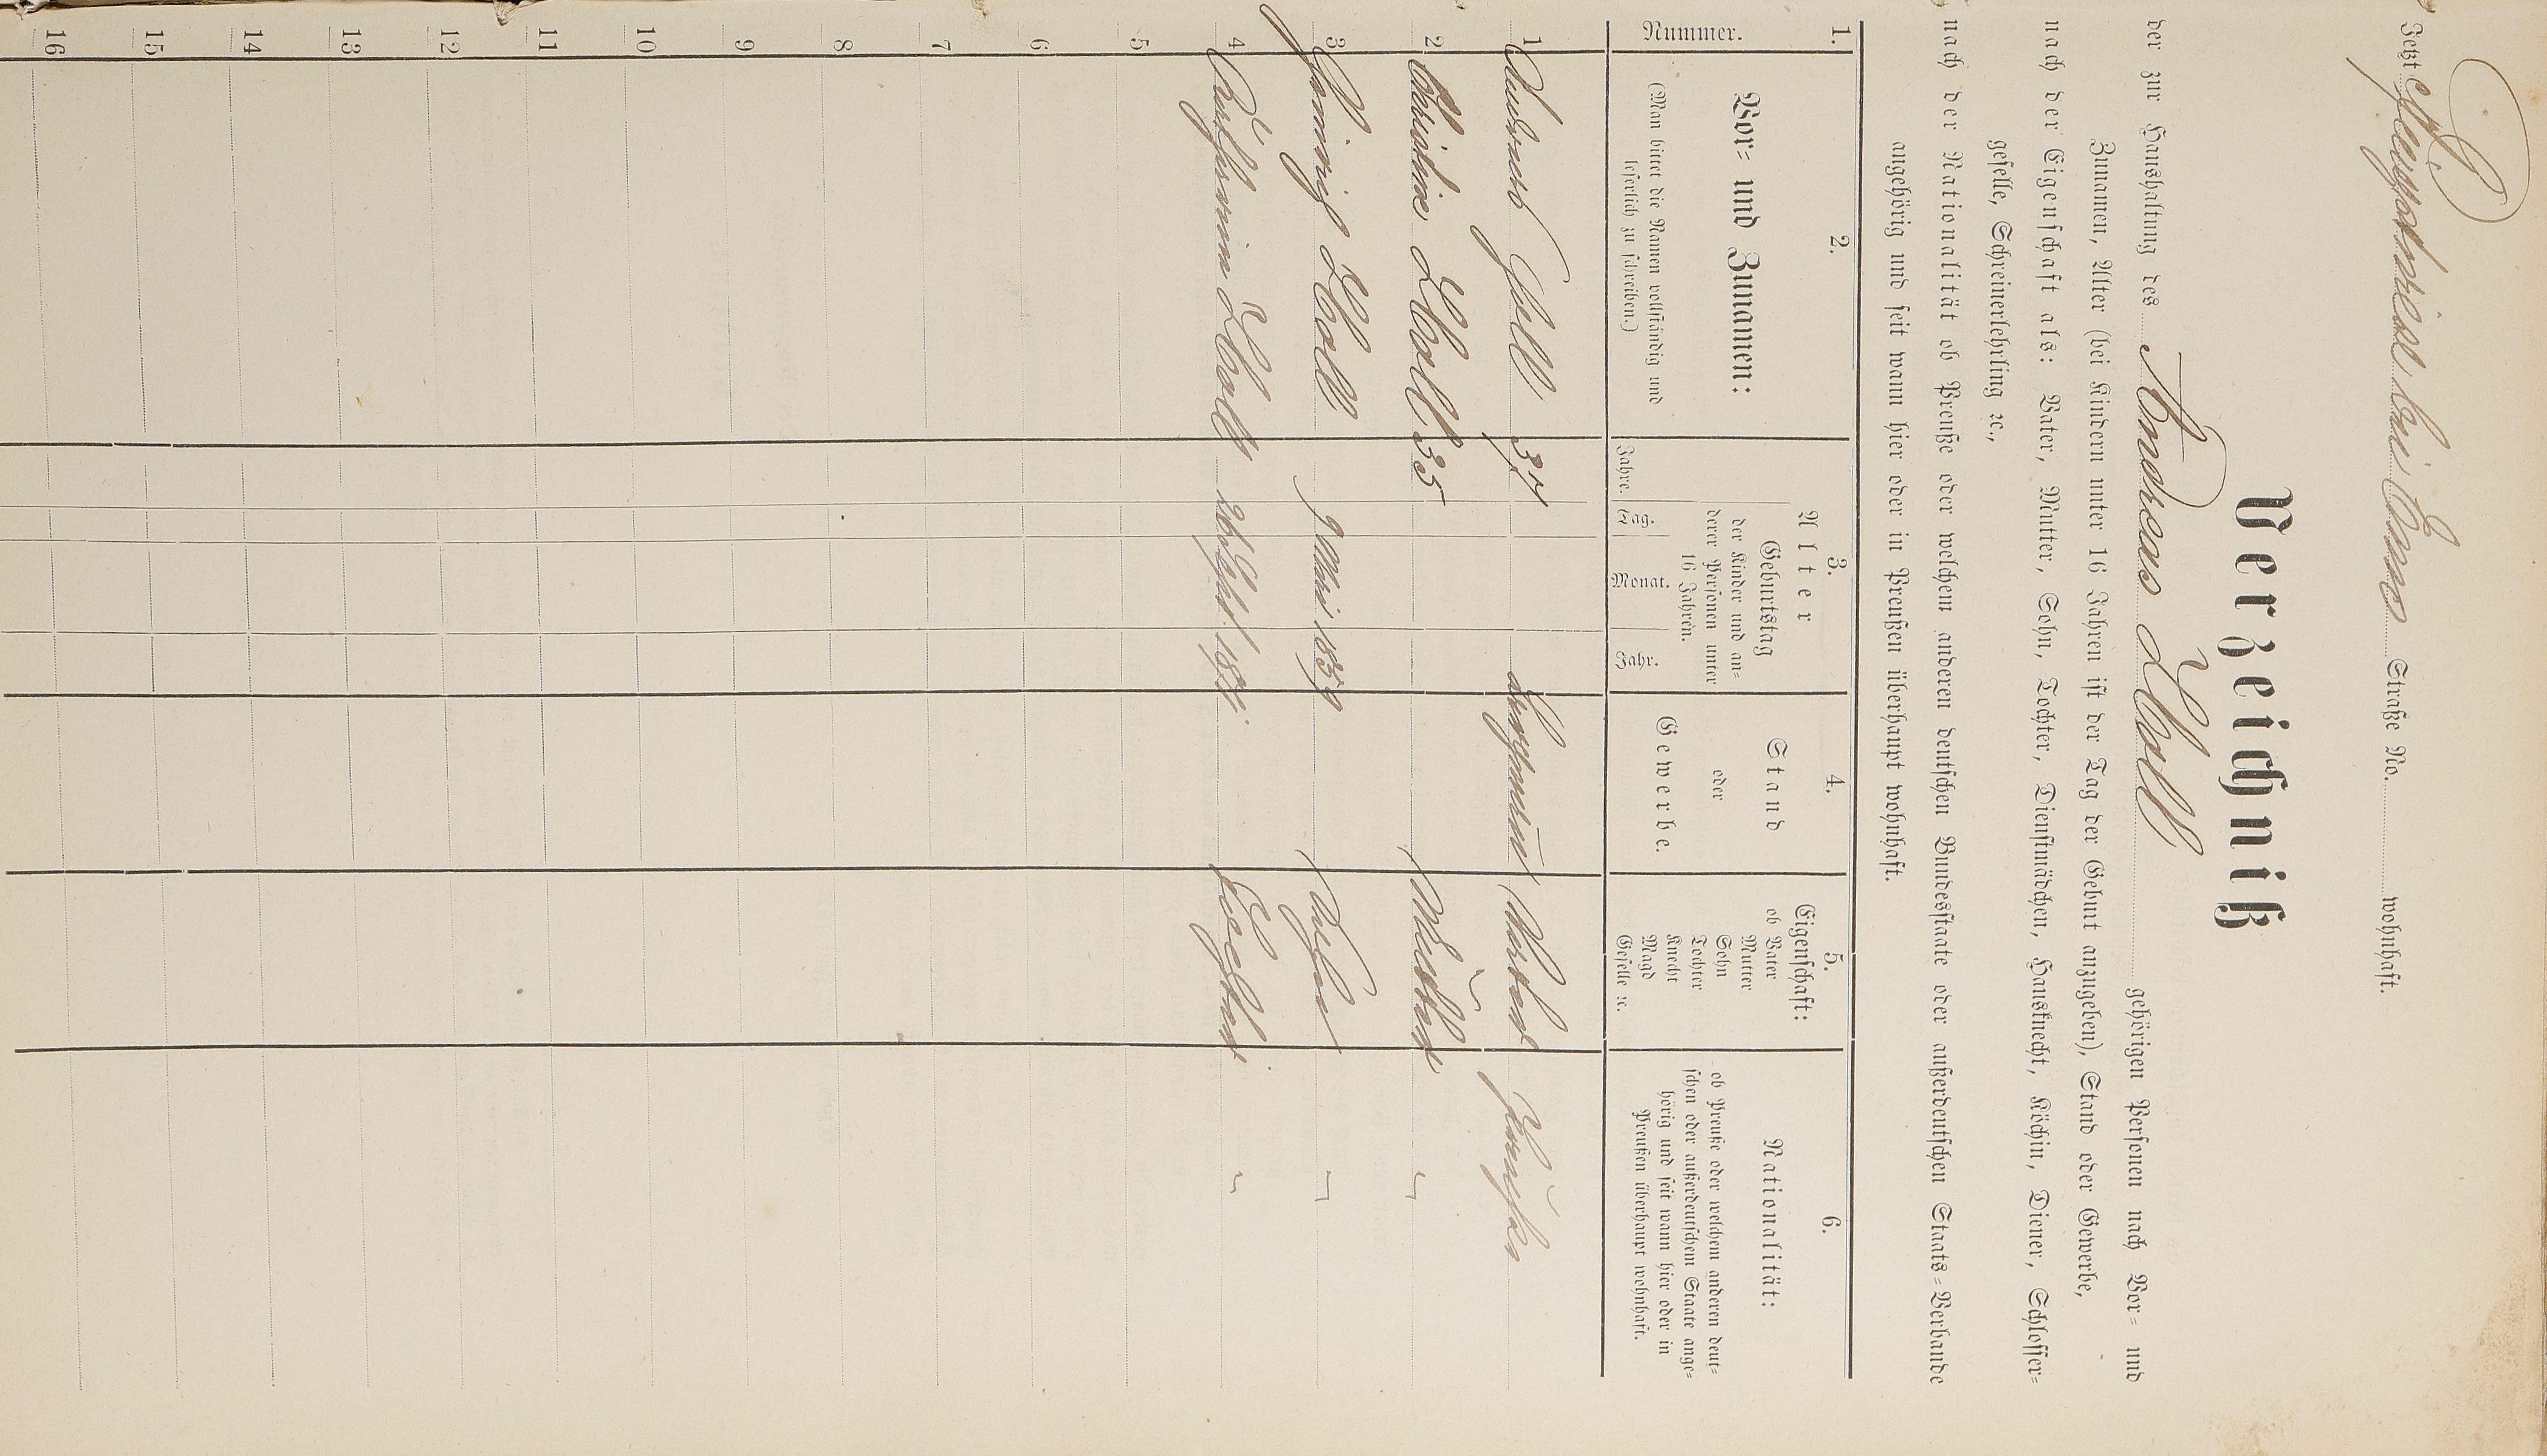 Jetzt bei Ems Straße No. wohnhaft.
Verzeichniß
der zur Haushaltung des Andreas Noll gehörigen Personen nach Vor- und
Zunamen, Alter (bei Kindern unter 16 Jahren ist der Tag der Geburt anzugeben), Stand oder Gewerbe,
nach der Eigenschaft als: Vater, Mutter, Sohn, Tochter, Dienstmädchen, Hausknecht, Köchin, Diener, Schlosser-
geselle, Schreinerlehrling ꝛc.,
nach der Nationalität ob Preuße oder welchem anderen deutschen Bundesstaate oder außerdeutschen Staats-Verbande
angehörig und seit wann hier oder in Preußen überhaupt wohnhaft.
1. 2. 3. 4. 5. 6.
Nummer.
Vor- und Zunamen:
(Man bittet die Namen vollständig und
leserlich zu schreiben.)
Alter
Geburtstag
der Kinder und an-
derer Personen unter
16 Jahren.
Jahre. Tag. Monat. Jahr.
Stand
oder
Gewerbe.
Eigenschaft:
ob Vater
Mutter
Sohn
Tochter
Knecht
Magd
Geselle ꝛc.
Nationalität:
ob Preuße oder welchem anderen deut-
schen oder außerdeutschen Staate ange-
hörig und seit wann hier oder in
Preußen überhaupt wohnhaft.
1 Andreas Noll 37 Bergmann Vater Preuße
2 Christine Noll 35 Mutter "
3 Noll 9 März 1859 Sohn "
4 Catharina Noll 26 Sept. Tochter "
5
6
7
8
9
10
11
12
13
14
15
16